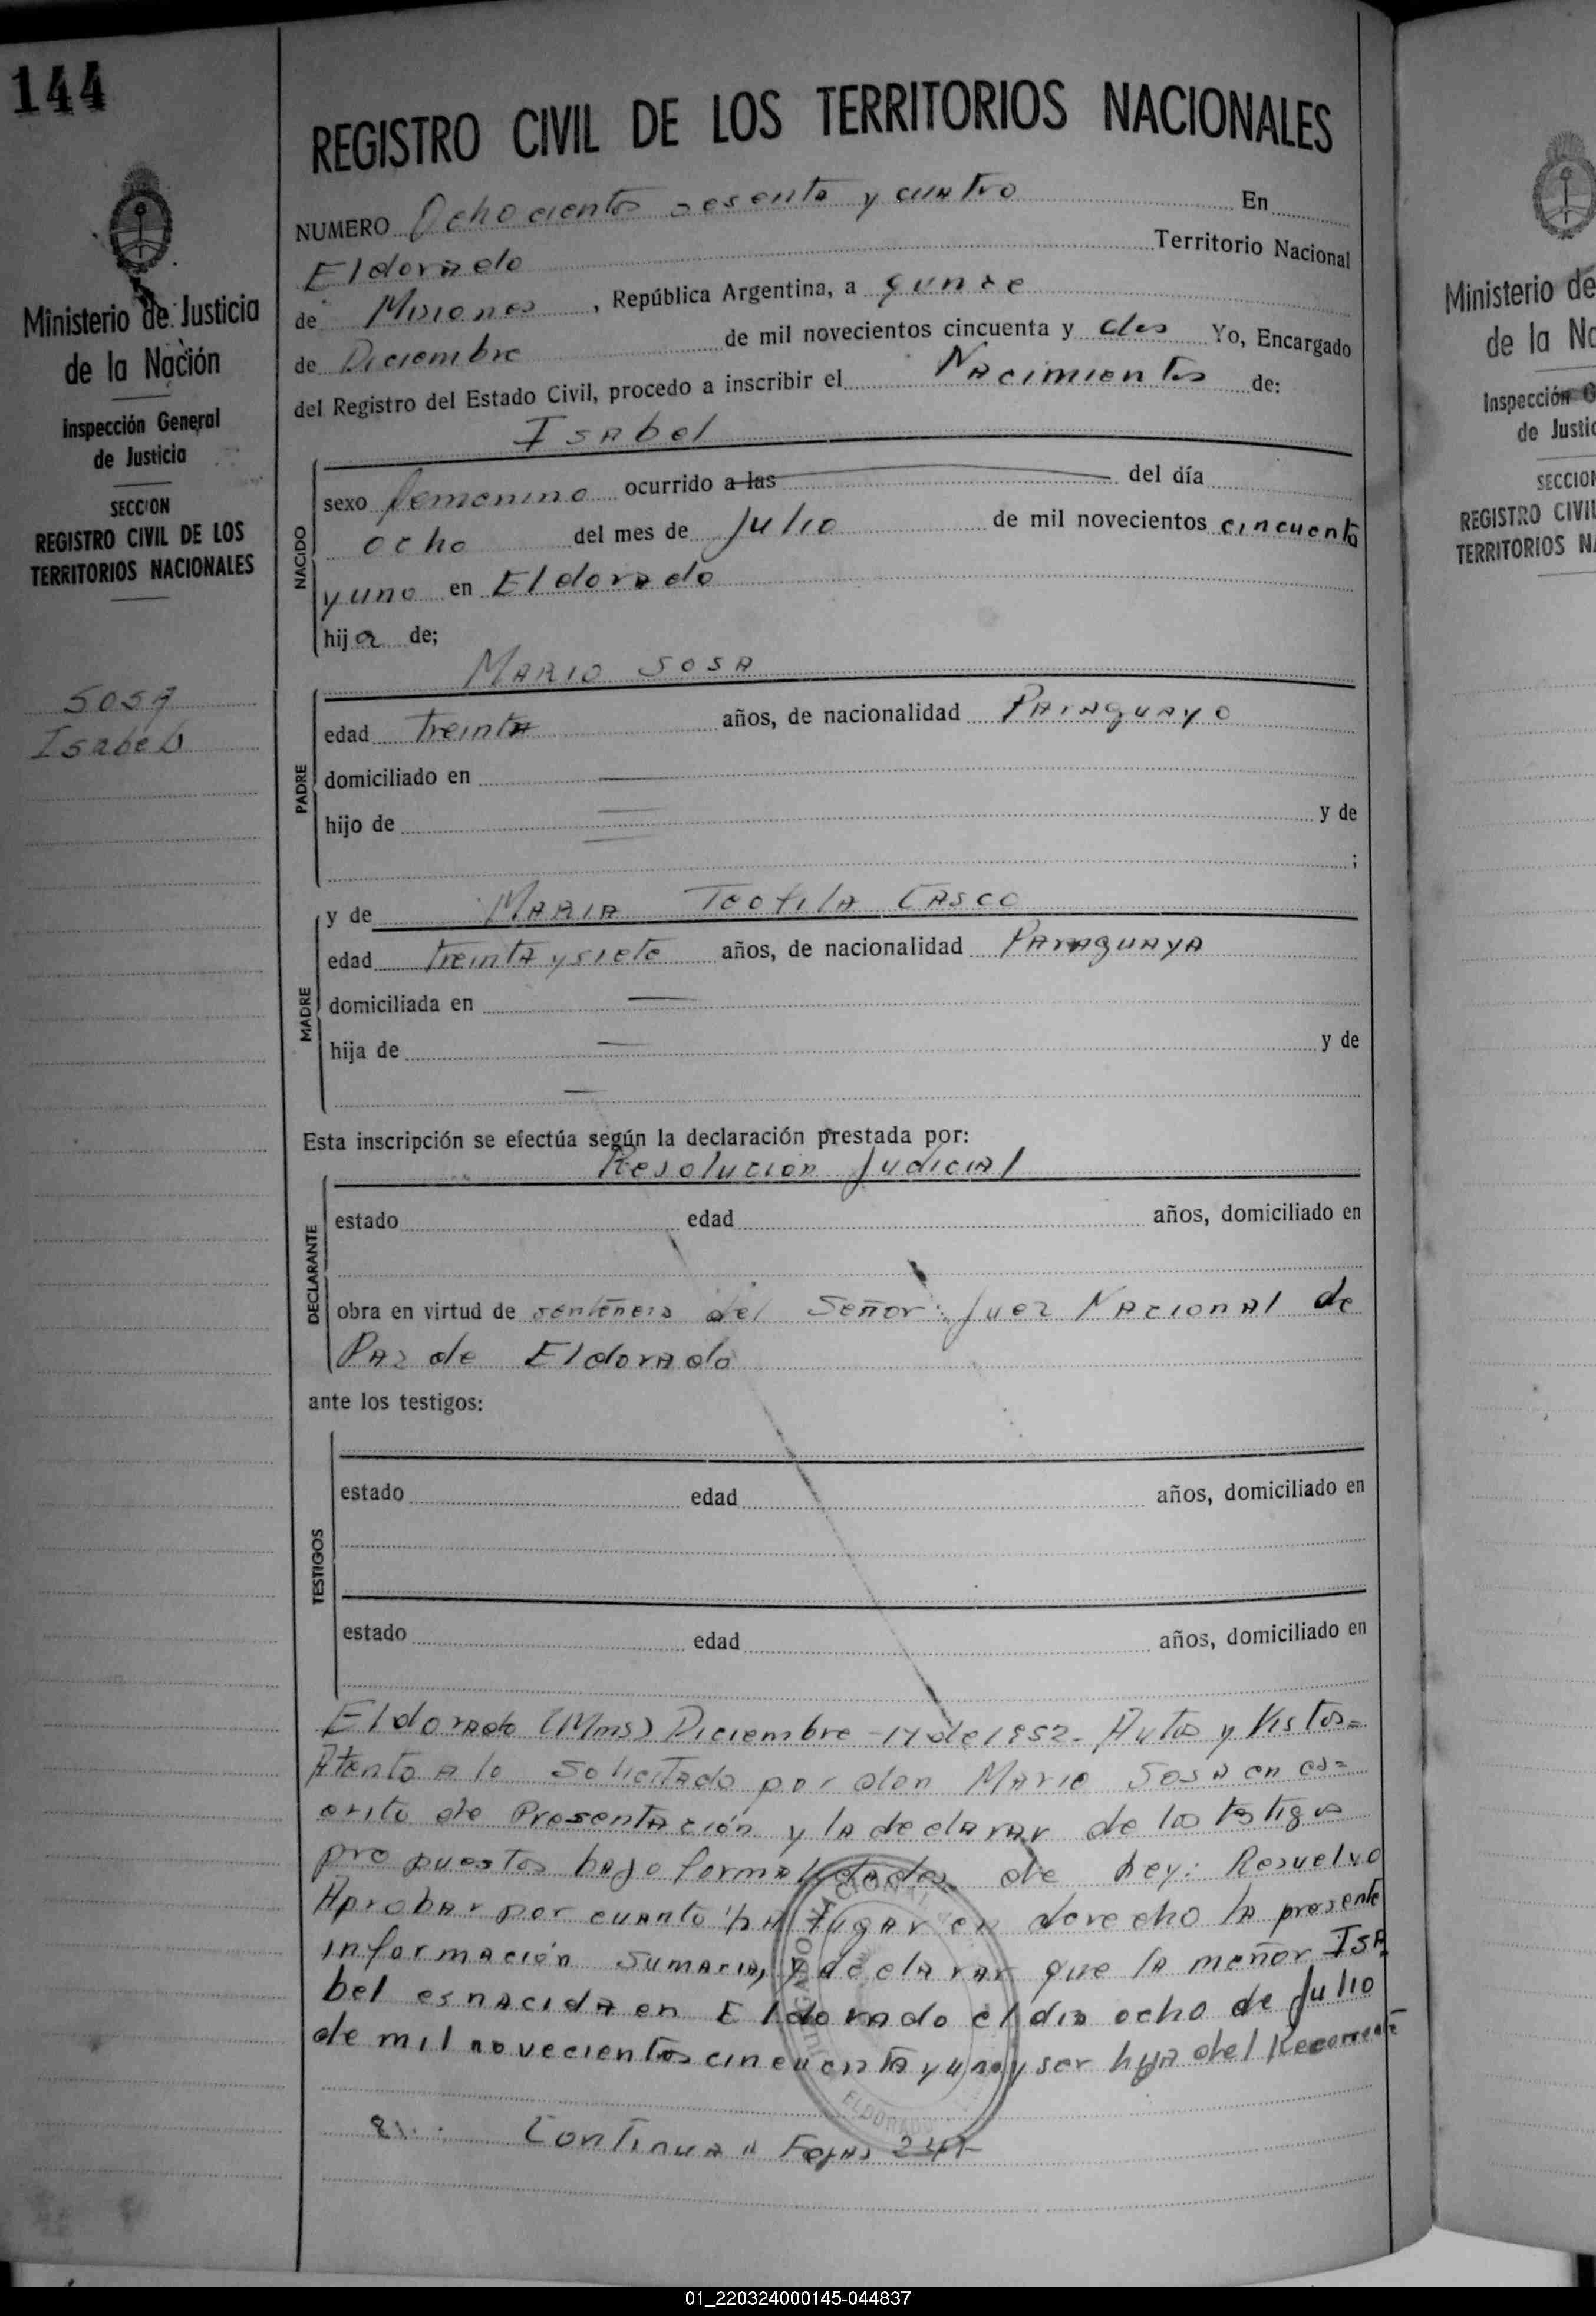 144
REGISTRO CIVIL DE LOS TERRITORIOS NACIONALES
Ministerio de Justicia
de la Nación
Inspección General
de Justicia
SECCION
REGISTRO CIVIL DE LOS
TERRITORIOS NACIONALES
Sosa
Isabel
NUMERO Ochocientos sesenta y cuatro En
Eldorado Territorio Nacional
de Misiones, República Argentina, a quince
de Diciembre de mil novecientos cincuenta y dos Yo, Encargado
del Registro del Estado Civil, procedo a inscribir el Nacimientos de:
Isabel
NACIDO
sexo femenino ocurrido a las del día
ocho del mes de Julio de mil novecientos cincuenta
y uno en Eldorado
hija de;
Mario Sosa
PADRE
edad treinta años, de nacionalidad Paraguayo
domiciliado en —
hijo de — y de
;
y de Maria Teofila Casco
MADRE
edad treinta y siete años, de nacionalidad Paraguaya
domiciliada en —
hija de — y de
—
Esta inscripción se efectúa según la declaración prestada por:
Resolucion Judicial
DECLARANTE
estado edad años, domiciliado en
obra en virtud de del Señor: Juez Nacional de
Paz de Eldorado
ante los testigos:
TESTIGOS
estado edad años, domiciliado en
estado edad años, domiciliado en
Eldorado (Mnes) Diciembre de 1952. Autos y Vistos=
Atento a lo solicitado por don Mario Sosa en es=
crito de Presentación y la declarar de los testigos
propuestos bajo formalidades de Ley: Resuelvo
Aprobar por cuanto ha lugar en derecho la presente
información sumaria, y declarar que la meñor Isa
bel es nacida en Eldorado el dia ocho de Julio
de mil novecientos cincuenta y uno y ser hija del Recorrente
Continua a Fojas
ELDORADO
Ministerio de
de la Na
Inspección G
de Justic
SECCION
REGISTRO CIVIL
TERRITORIOS NA
01_220324000145-044837